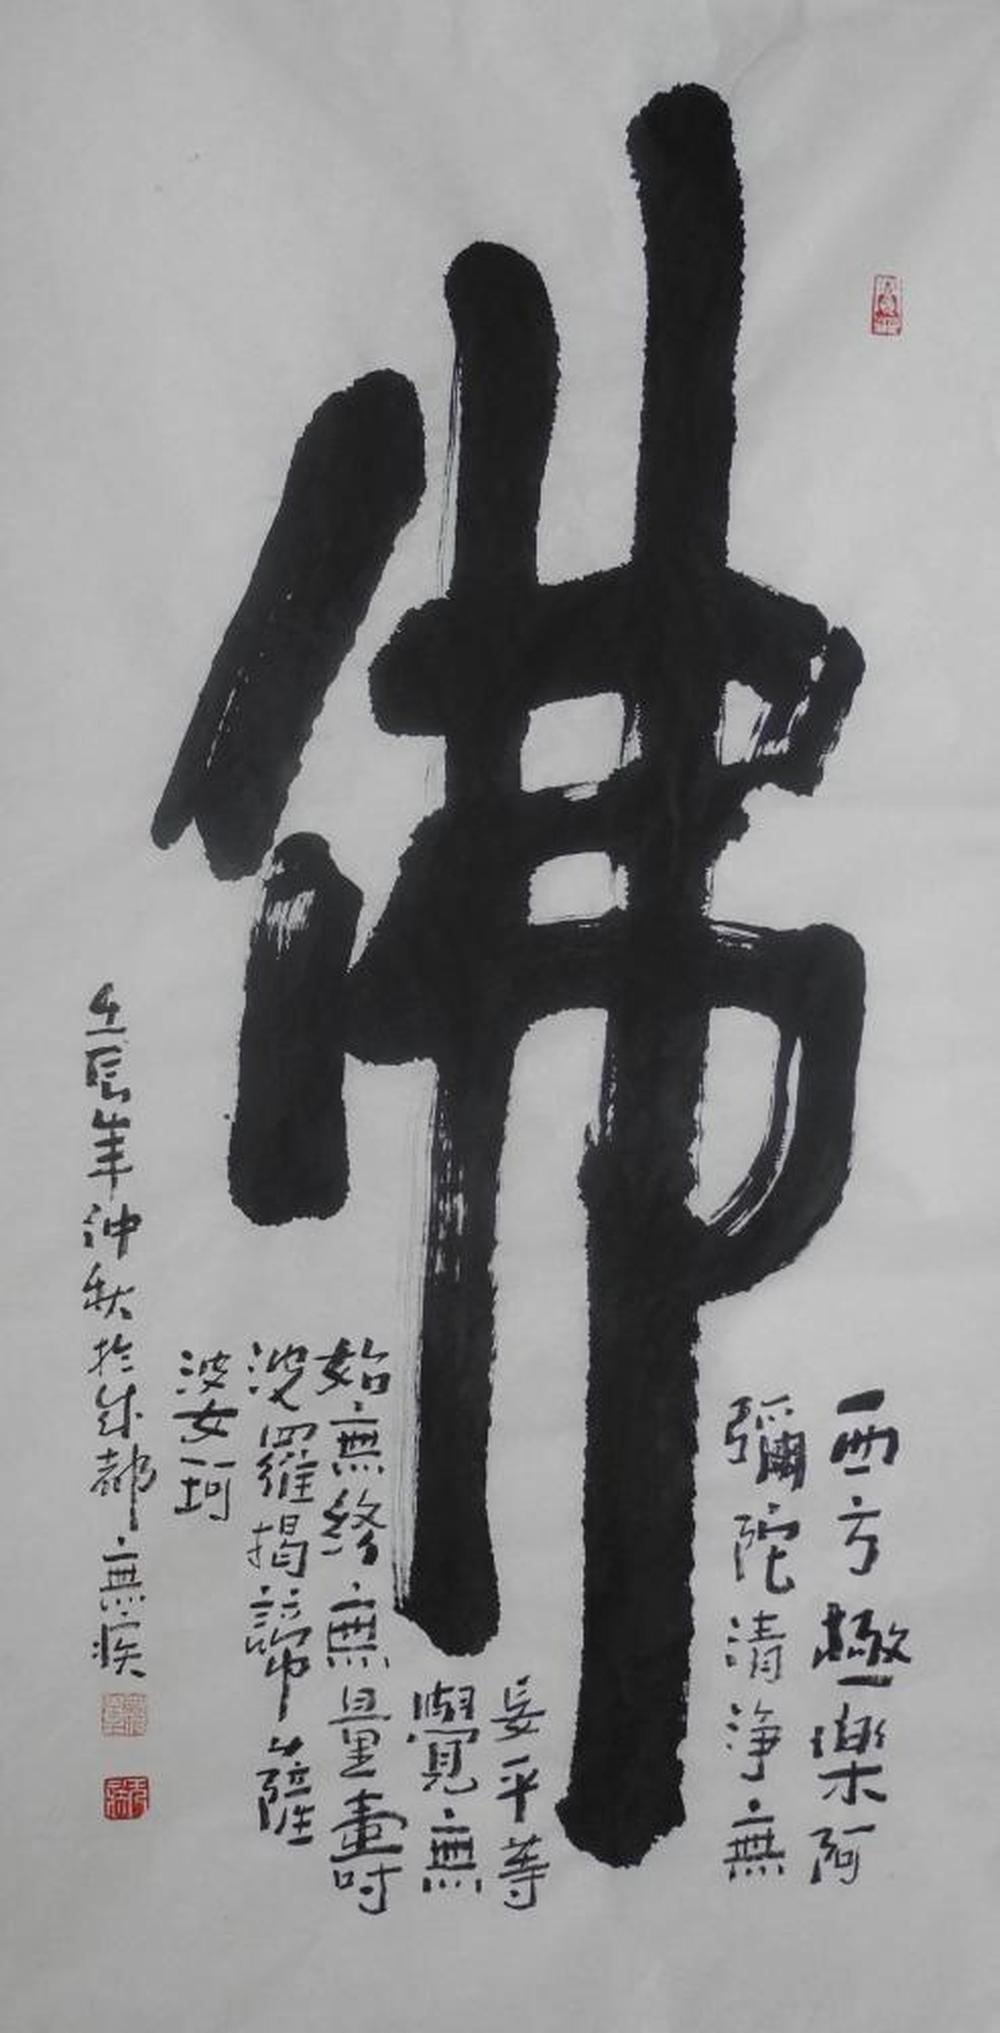 佛
西方極樂阿
彌陀清淨無
妄平等
覺無
始無終無量壽
波羅揭諦薩
波女珂
壬辰年仲秋於成都無疾